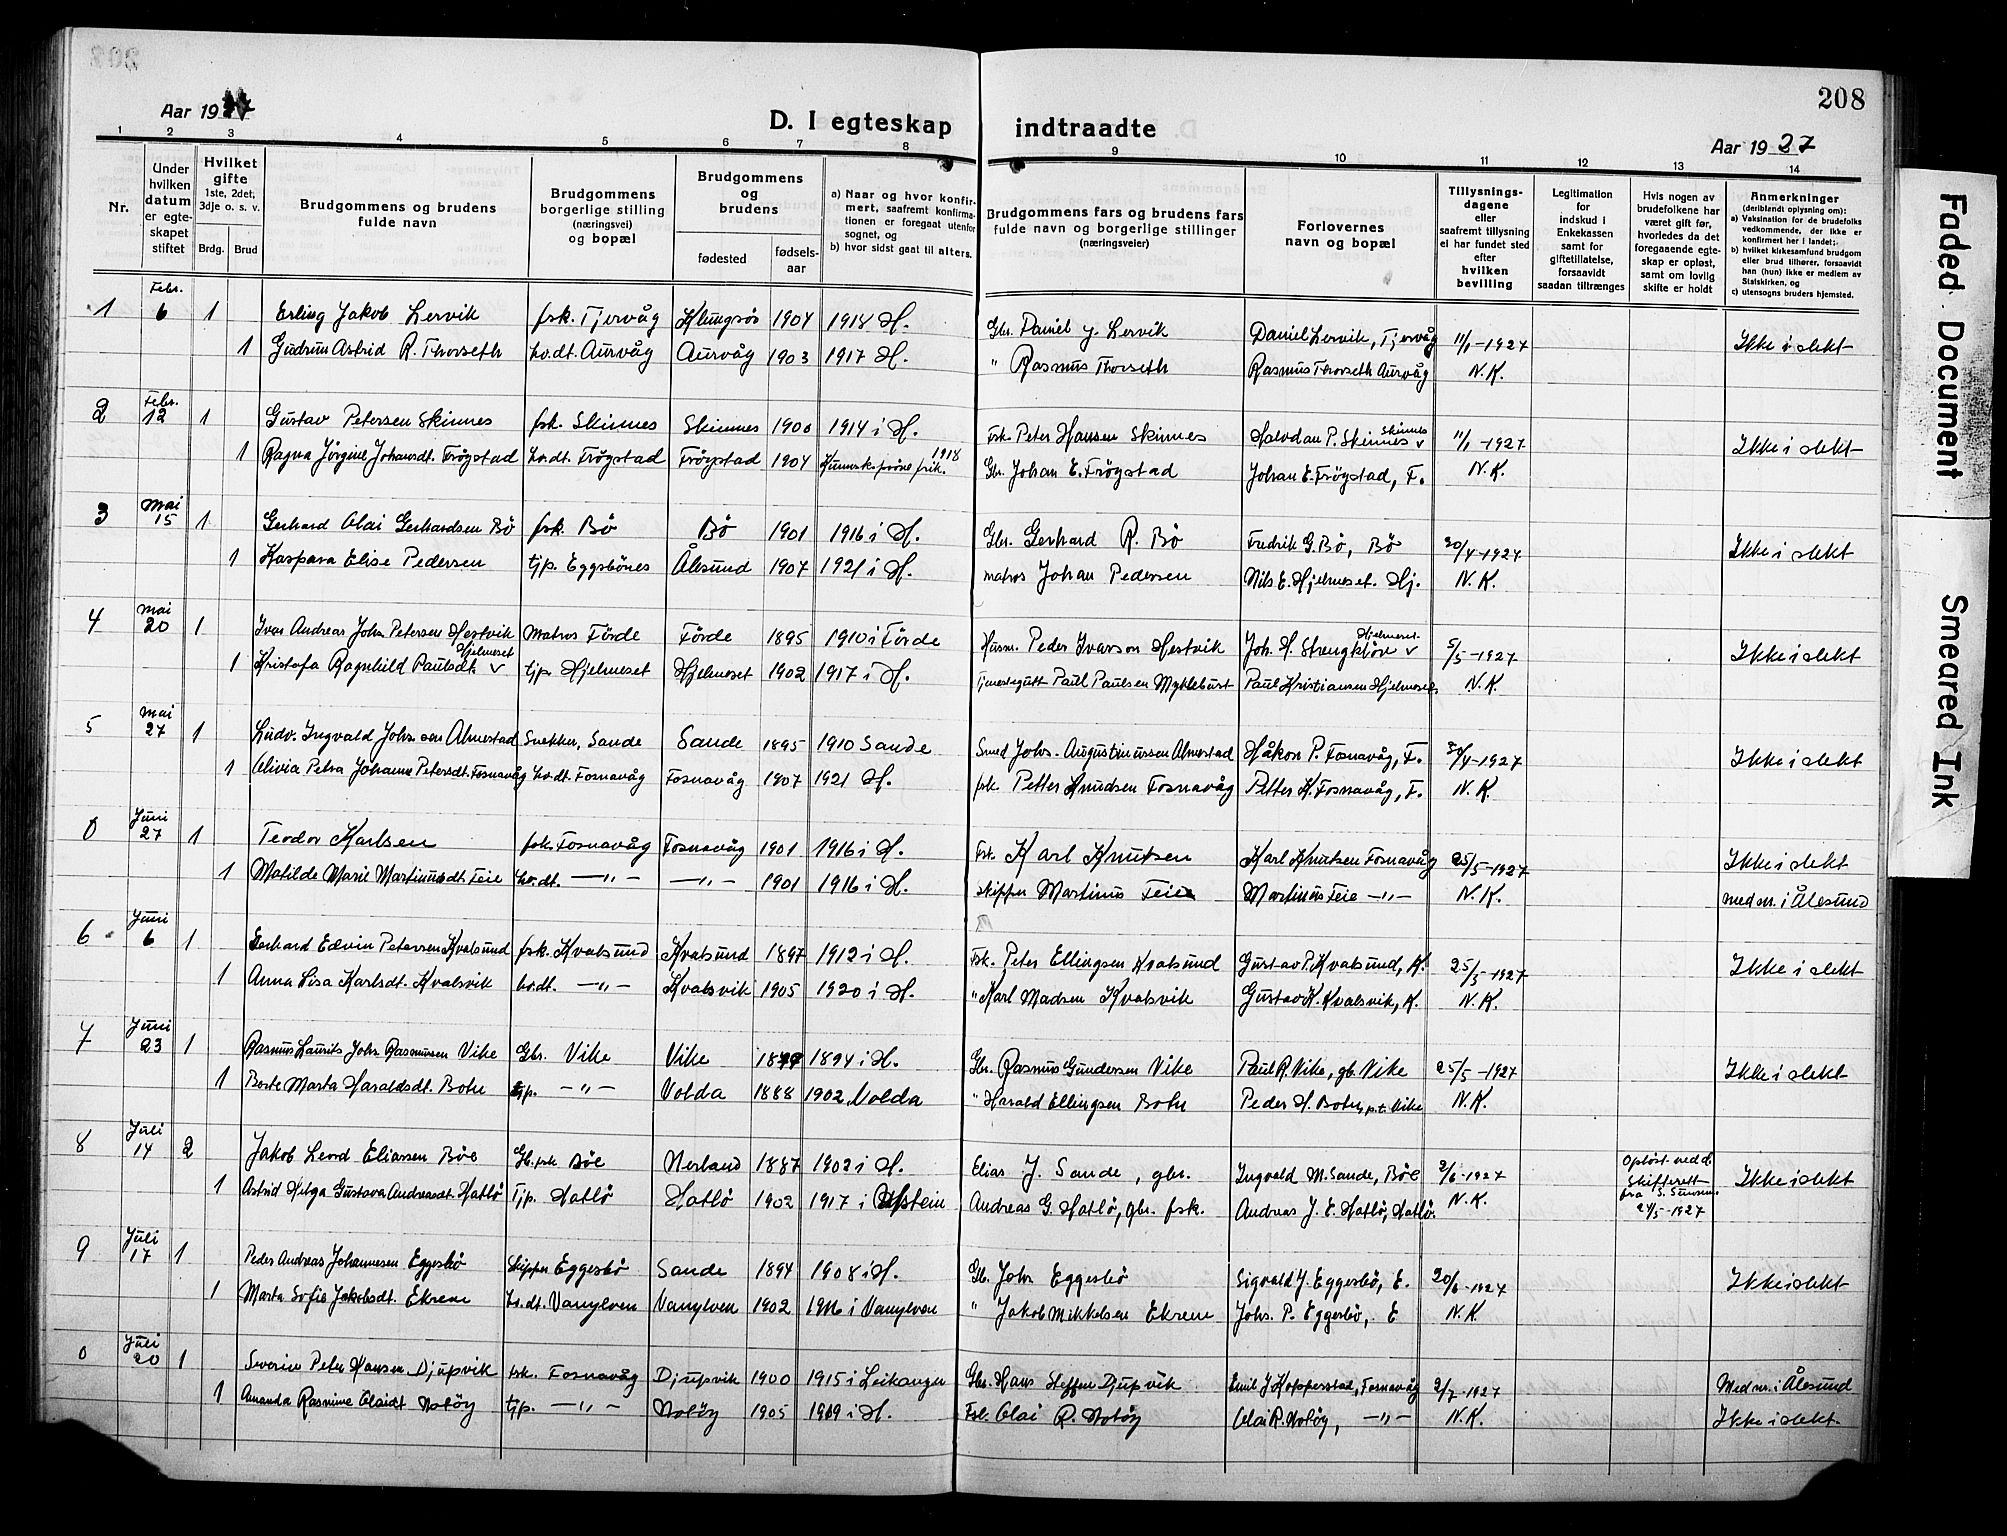 208
Aar 1927
D. I egteskap indtraadte
Aar 1927
1 2 3 4 5 6 7 8 9 10 11 12 13 14
Nr.
Under hvilken datum er egteskapet stiftet
Hvilket gifte 1ste, 2det, 3dje o. s. v.
Brdg. Brud
Brudgommens og brudens fulde navn
Brudgommens borgerlige stilling (næringsvei) og bopæl
Brudgommens og brudens
fødested
fødselsaar
a) Naar og hvor konfirmert, saafremt konfirmationen er foregaat utenfor sognet, og
b) hvor sidst gaat til alters.
Brudgommens fars og brudens fars fulde navn og borgerlige stillinger (næringsveier)
Forlovernes navn og bopæl
Tillysningsdagene eller saafremt tillysning ei har fundet sted efter hvilken bevilling
Legitimation for indskud i Enkekassen samt for giftetillatelse, forsaavidt saadan tiltrænges
Hvis nogen av brudefolkene har været gift før, hvorledes da det foregaaende egteskap er opløst, samt om lovlig skifte er holdt
Anmerkninger (deriblandt oplysning om):
a) Vaksination for de brudefolks vedkommende, der ikke er konfirmert her i landet;
b) hvilket kirkesamfund brudgom eller brud tilhører, forsaavidt han (hun) ikke er medlem av Statskirken, og
c) utensogns bruders hjemsted.
1 Febr. 6 1 Erling Jakob Lervik fsk. Tjervåg Klungsös 1904 1918 H. Gbr. Daniel J. Lervik Daniel Lervik, Tjervåg 11/1-1927 Ikke i slekt
1 Gudrun Astrid R. Thorseth ho.dt. Aurvåg Aurvåg 1903 1917 H. " Rasmus Thorseth Rasmus Thorseth Aurvåg N.K.
2 Febr. 12 1 Gustav Petersen Skinnes fsk. Skinnes Skinnes 1900 1914 i H. Fsk. Peter Hansen Skinnes Halvdan P. Skinnes Skinnes 11/1-1927 Ikke i slekt
1 Ragna Jörgine Johansdt. Frögstad ho.dt. Frögstad Frögstad 1904 1918 Gbr. Johan E. Frögstad Johan E. Frögstad, F. N.K.
3 Mai 15 1 Gerhard Olai Gerhardsen Bö fsk. Bö Bö 1901 1916 i H. Gbr. Gerhard R. Bö Fredrik G. Bö, Bö 20/4-1927 Ikke i slekt
1 Kaspara Elise Pedersen tjp. Eggsbönes Ålesund 1907 1921 i H. matros Johan Pedersen Nils E. Hjelmeset. Hj. N.K.
4 Mai 20 1 Ivar Andreas Johs Petersen Hestvik Matros Förde Förde 1895 1910 i Förde Husm. Peder Ivarson Hestvik Joh. H. Strengklöv Hjelmeset 5/5-1927 Ikke i slekt
1 Kristofa Ragnhild Paulsdt. Hjelmeset tjp. Hjelmeset Hjelmeset 1902 1917 i H. Tjenestegutt Paul Paulsen Myklebust Paul Kristiansen Hjelmeset N.K.
5 Mai 27 1 Ludv. Ingvald Johs.sen Almestad Snekker, Sande Sande 1895 1910 Sande Smed Johs. Augustinussen Almestad Håkon P. Fosnavåg, F. 30/4-1927 Ikke i slekt
1 Olivia Petra Johanne Petersdt. Fosnavåg ho.dt. Fosnavåg Fosnavåg 1907 1921 H. fsk Petter Knudsen Fosnavåg Petter K. Fosnavåg, F. N.K.
0 Juni 27 1 Teodor Karlsen fsk. Fosnavåg Fosnavåg 1901 1916 i H. Fsk. Karl Knutsen Karl Knutsen Fosnavåg 25/5-1927 Ikke i slekt
1 Matilde Marie Martinusdt. Teie ho.dt. —„— —„— 1901 1916 i H. skipper Martinus Teie Martinus Teie —„— N.K. med nr. i Ålesund
6 Juni 6 1 Gerhard Edvin Petersen Kvalsund fsk. Kvalsund Kvalsund 1897 1912 i H. Fsk. Peter Ellingsen Kvalsund Gustav P. Kvalsund, K. 25/5-1927 Ikke i slekt
1 Anna Lisa Karlsdt. Kvalsvik ho.dt. —„— Kvalsvik 1905 1920 i H. " Karl Madsen Kvalsvik Gustav K. Kvalsvik, K. N.K.
7 Juni 23 1 Rasmus Laurits Johs Rasmussen Vike Gbr. Vike Vike 1894 i H. Gbr. Rasmus Gundersen Vike Paul R. Vike, gb. Vike 25/5-1927 Ikke i slekt
1 Berte Marta Haraldsdt. Botn tjp. —„— Volda 1888 1902, Volda " Harald Ellingsen Botn Peder H. Botn, p.t. Vike N.K.
8 Juli 14 2 Jakob Leord Eliassen Böe Gb. fsk Böe Nerland 1887 1902 i H. Elias J. Sande, gbr. Ingvald M. Sande, Böe 2/6-1927 Oplöst ved d. Skifterett fra S. Sunnm. 24/5-1927 Ikke i slekt
1 Astrid Helga Gustava Andreasdt. Hatlö Tjp. Hatlö Hatlö 1902 1917 i Ulstein Andreas G. Hatlö, gbr. fsk. Andreas J. E. Hatlö, Hatlö. N.K.
9 Juli 17 1 Peder Andreas Johannesen Eggesbö Skipper Eggesbö Sande 1894 1908 i H. Gb. Johs Eggesbö Sigvald J. Eggesbö, E. 20/6-1927 Ikke i slekt
1 Marta Sofie Jakobsdt. Ekrem ho.dt. Vanylven Vanylven 1902 1916 i Vanylven " Jakob Mikkelsen Ekrem Johs. P. Eggesbö, E N.K.
0 Juli 20 1 Severin Peter Hansen Djupvik fsk. Fosnavåg Djupvik 1900 1915 i Leikanger Gbr. Hans Steffen Djupvik Emil J Kopperstad, Fosnavåg 2/7-1927 Med nr. i Ålesund
1 Amanda Rasmine Olaidt Notöy tjp. —„— Notöy 1905 1919 i H. Fsk. Olai R. Notöy Olai R. Notöy, —„— N.K. Ikke i slekt
Faded Document
Smeared Ink